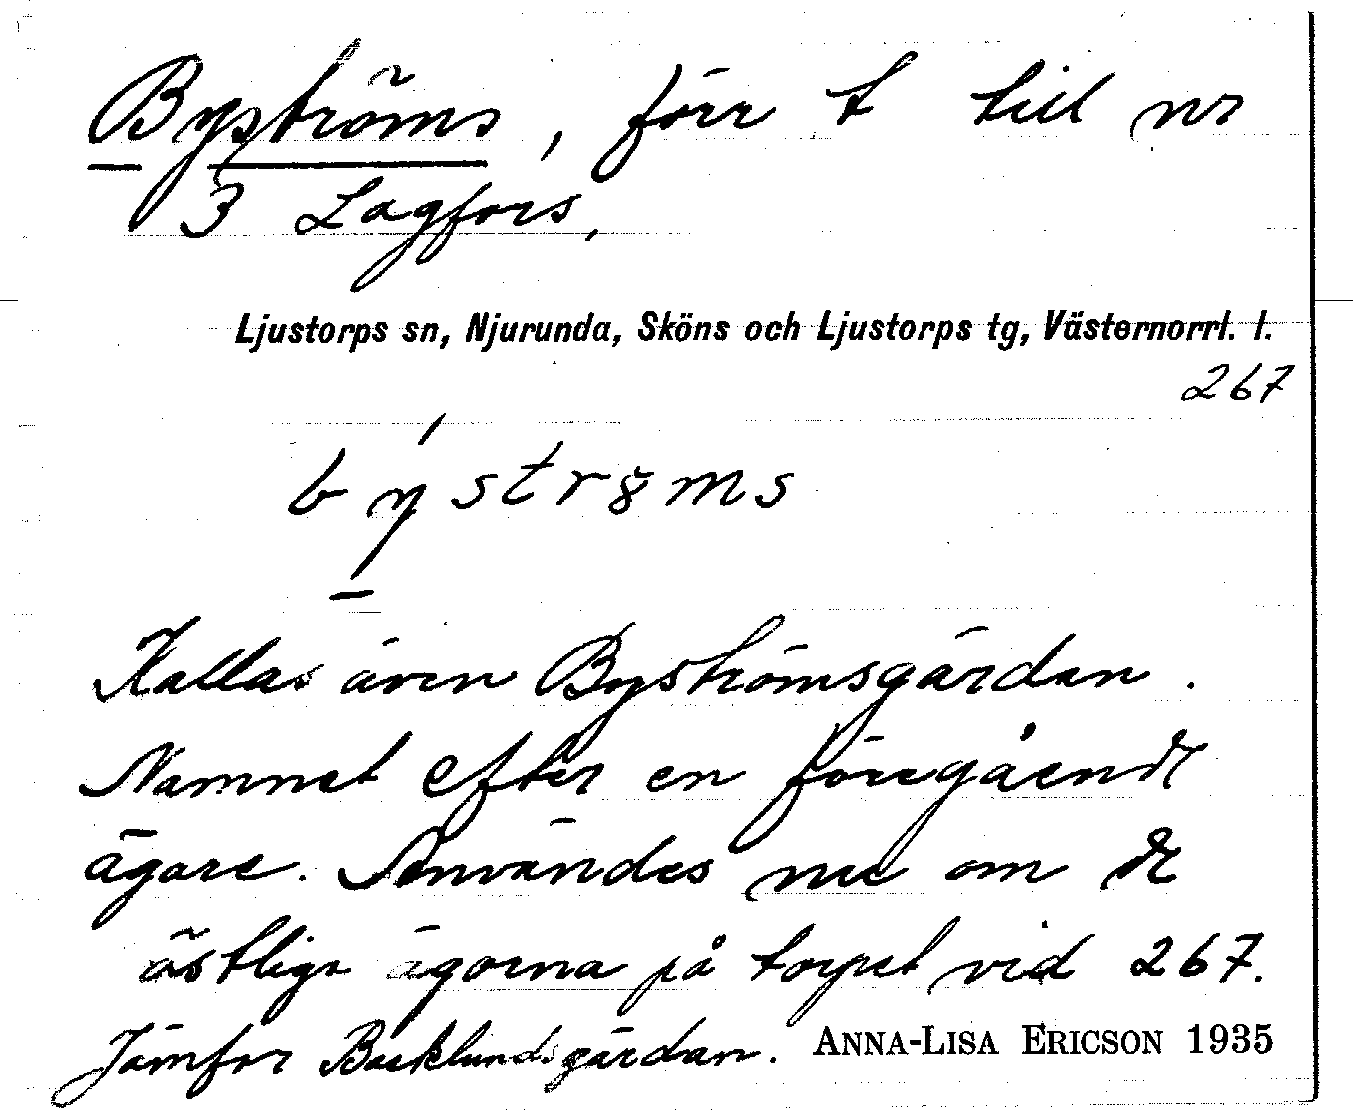 Byströms, förr t till nr
3 Lagfors,
Ljustorps sn, Njurunda, Sköns och Ljustorps tg, Västernorrl. l.
267
býstrɞ̆ms
Kallas även Byströmsgärdan.
Namnet efter en föregående
ägare. Användes nu om de
östliga ägorna på torpet vid 267.
Jämför Backlundsgärdan. ANNA-LISA ERICSON 1935